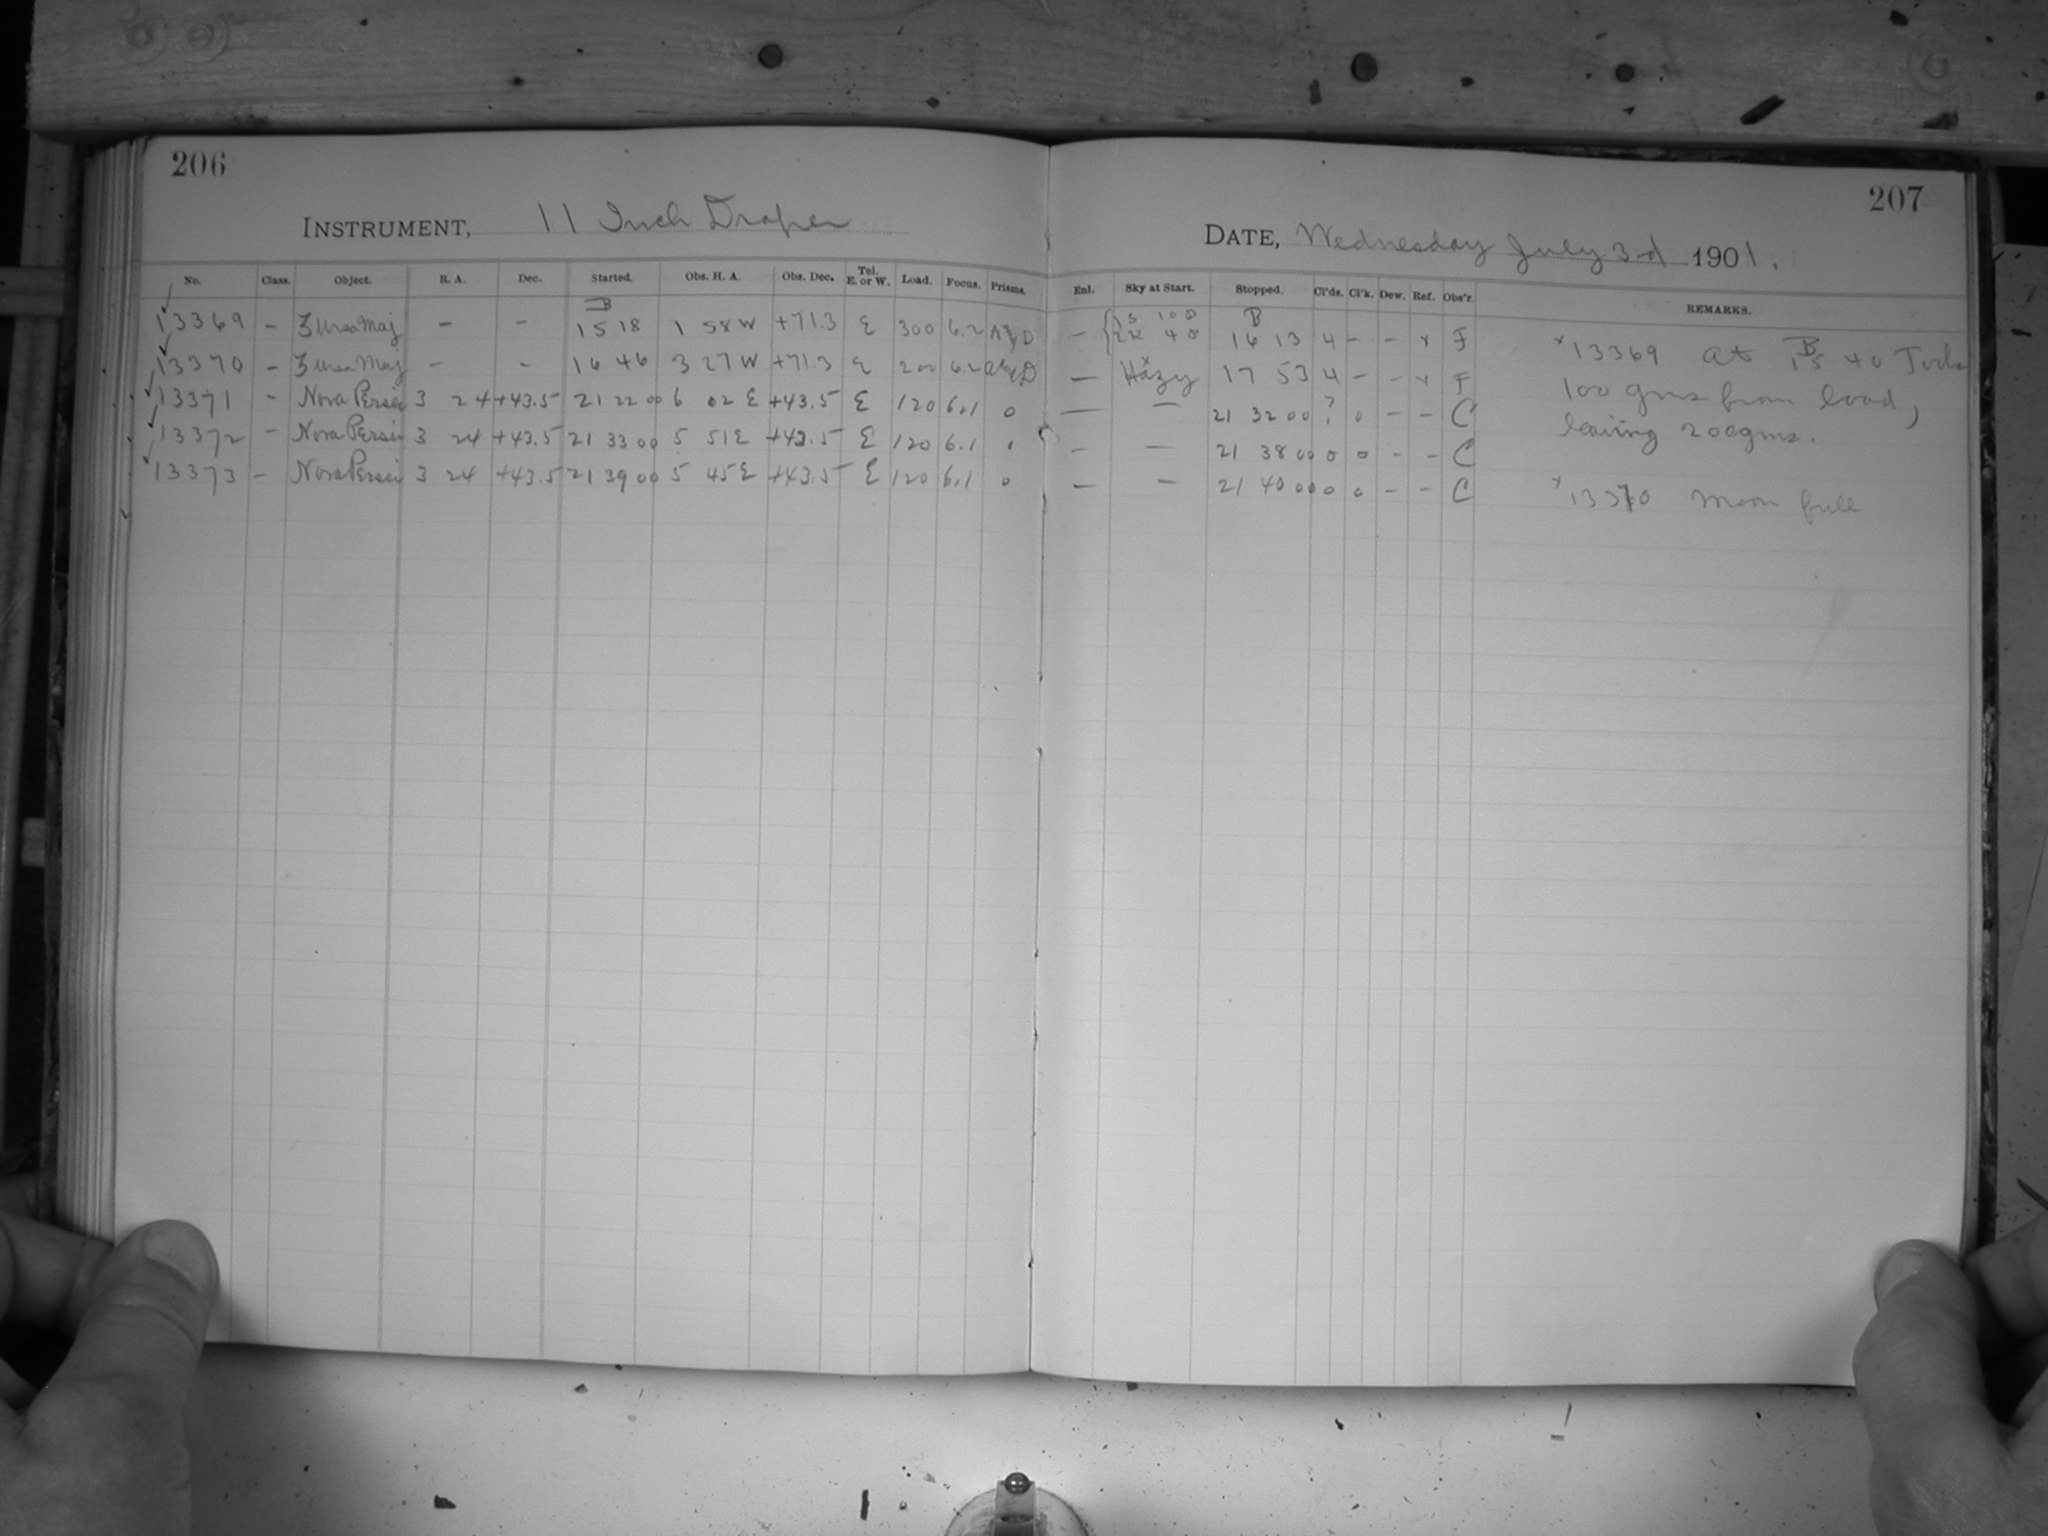 206
INSTRUMENT, 11 Inch Draper
207
DATE, Wednesday July 3rd 1901.
No. Class. Object. R. A. Dec. Started. Obs. H. A. Obs. Dec. Tel. E. or W. Load. Focus. Prisms. Enl. Sky at Start. Stopped. Cl'ds. Cl'k. Dew. Ref. Obs'r. REMARKS.
13369 – ζ Ursa Maj – – B 15 18 1 58 W +71.3 E 300 6.2 – 10 40 B 16 13 4 – – x F
13370 – ζ Ursa Maj – – 16 46 3 27 W +71.3 E 200 6.2 — Hazy x 17 53 4 – – x F
13371 – Nova Persei 3 24 +43.5 21 22 00 6 02 E +43.5 E 120 6.1 0 — – 21 32 00 ? 0 – – C
13372 – Nova Persei 3 24 +43.5 21 33 00 5 51 E +43.5 E 120 6.1 – – 21 38 00 0 0 – – C
13373 – Nova Persei 3 24 +43.5 21 39 00 5 45 E +43.5 E 120 6.1 0 — – 21 40 00 0 0 – – C
x 13369 at B 15 40 Took
100 gms from load,
leaving 200gms.
x 13370 Moon full